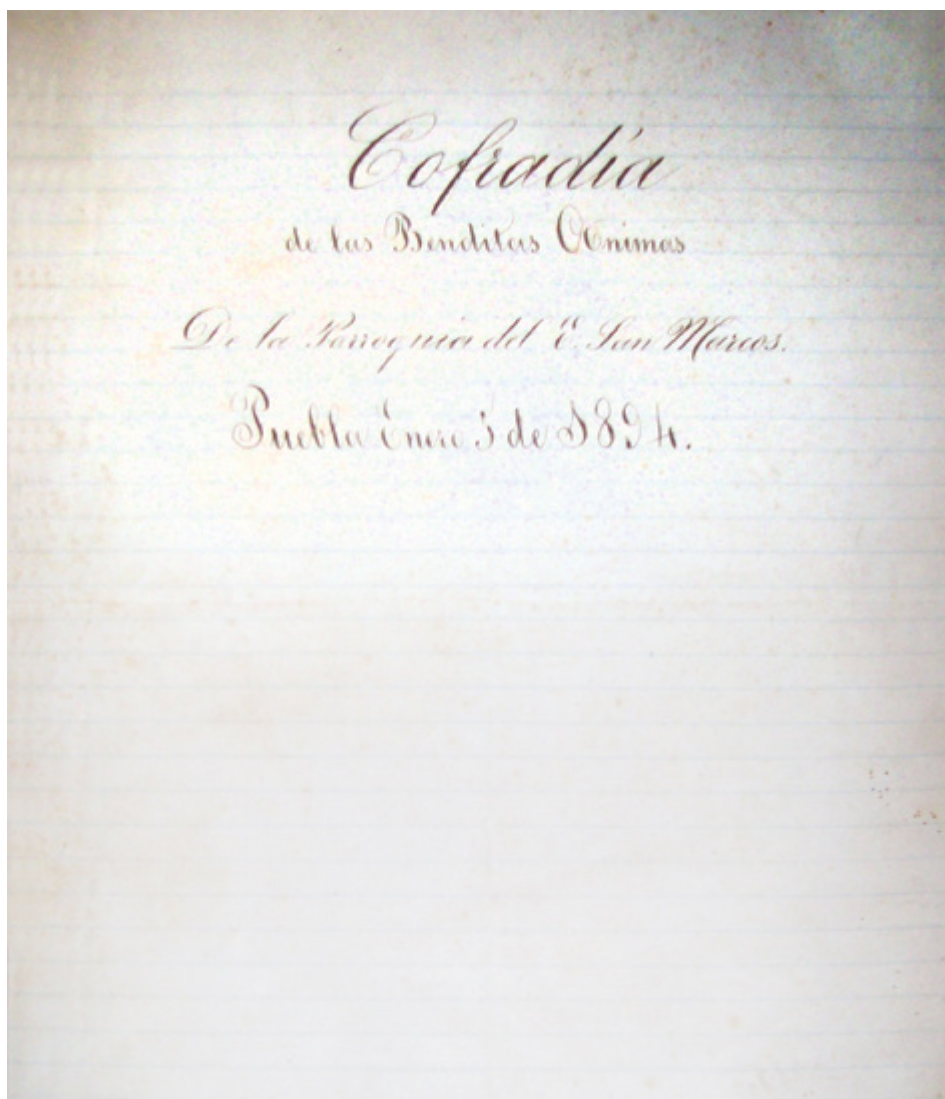 Cofradía
de las Benditas Animas
De la Parroquia del E. San Marcos.
Puebla Enero 5 de 1894.